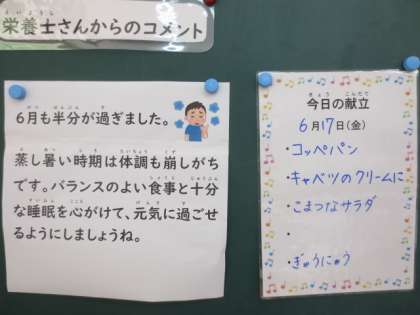 栄養士さんからのコメント
6月も半分が過ぎました。
蒸し暑い時期は体調も崩しがち
です。バランスのよい食事と十分
な睡眠を心がけて、元気に過ごせ
るようにしましょうね。
今日の献立
6月17日(金)
・コッペパン
・キャベツのクリームに
・こまつなサラダ
・
・ぎゅうにゅう